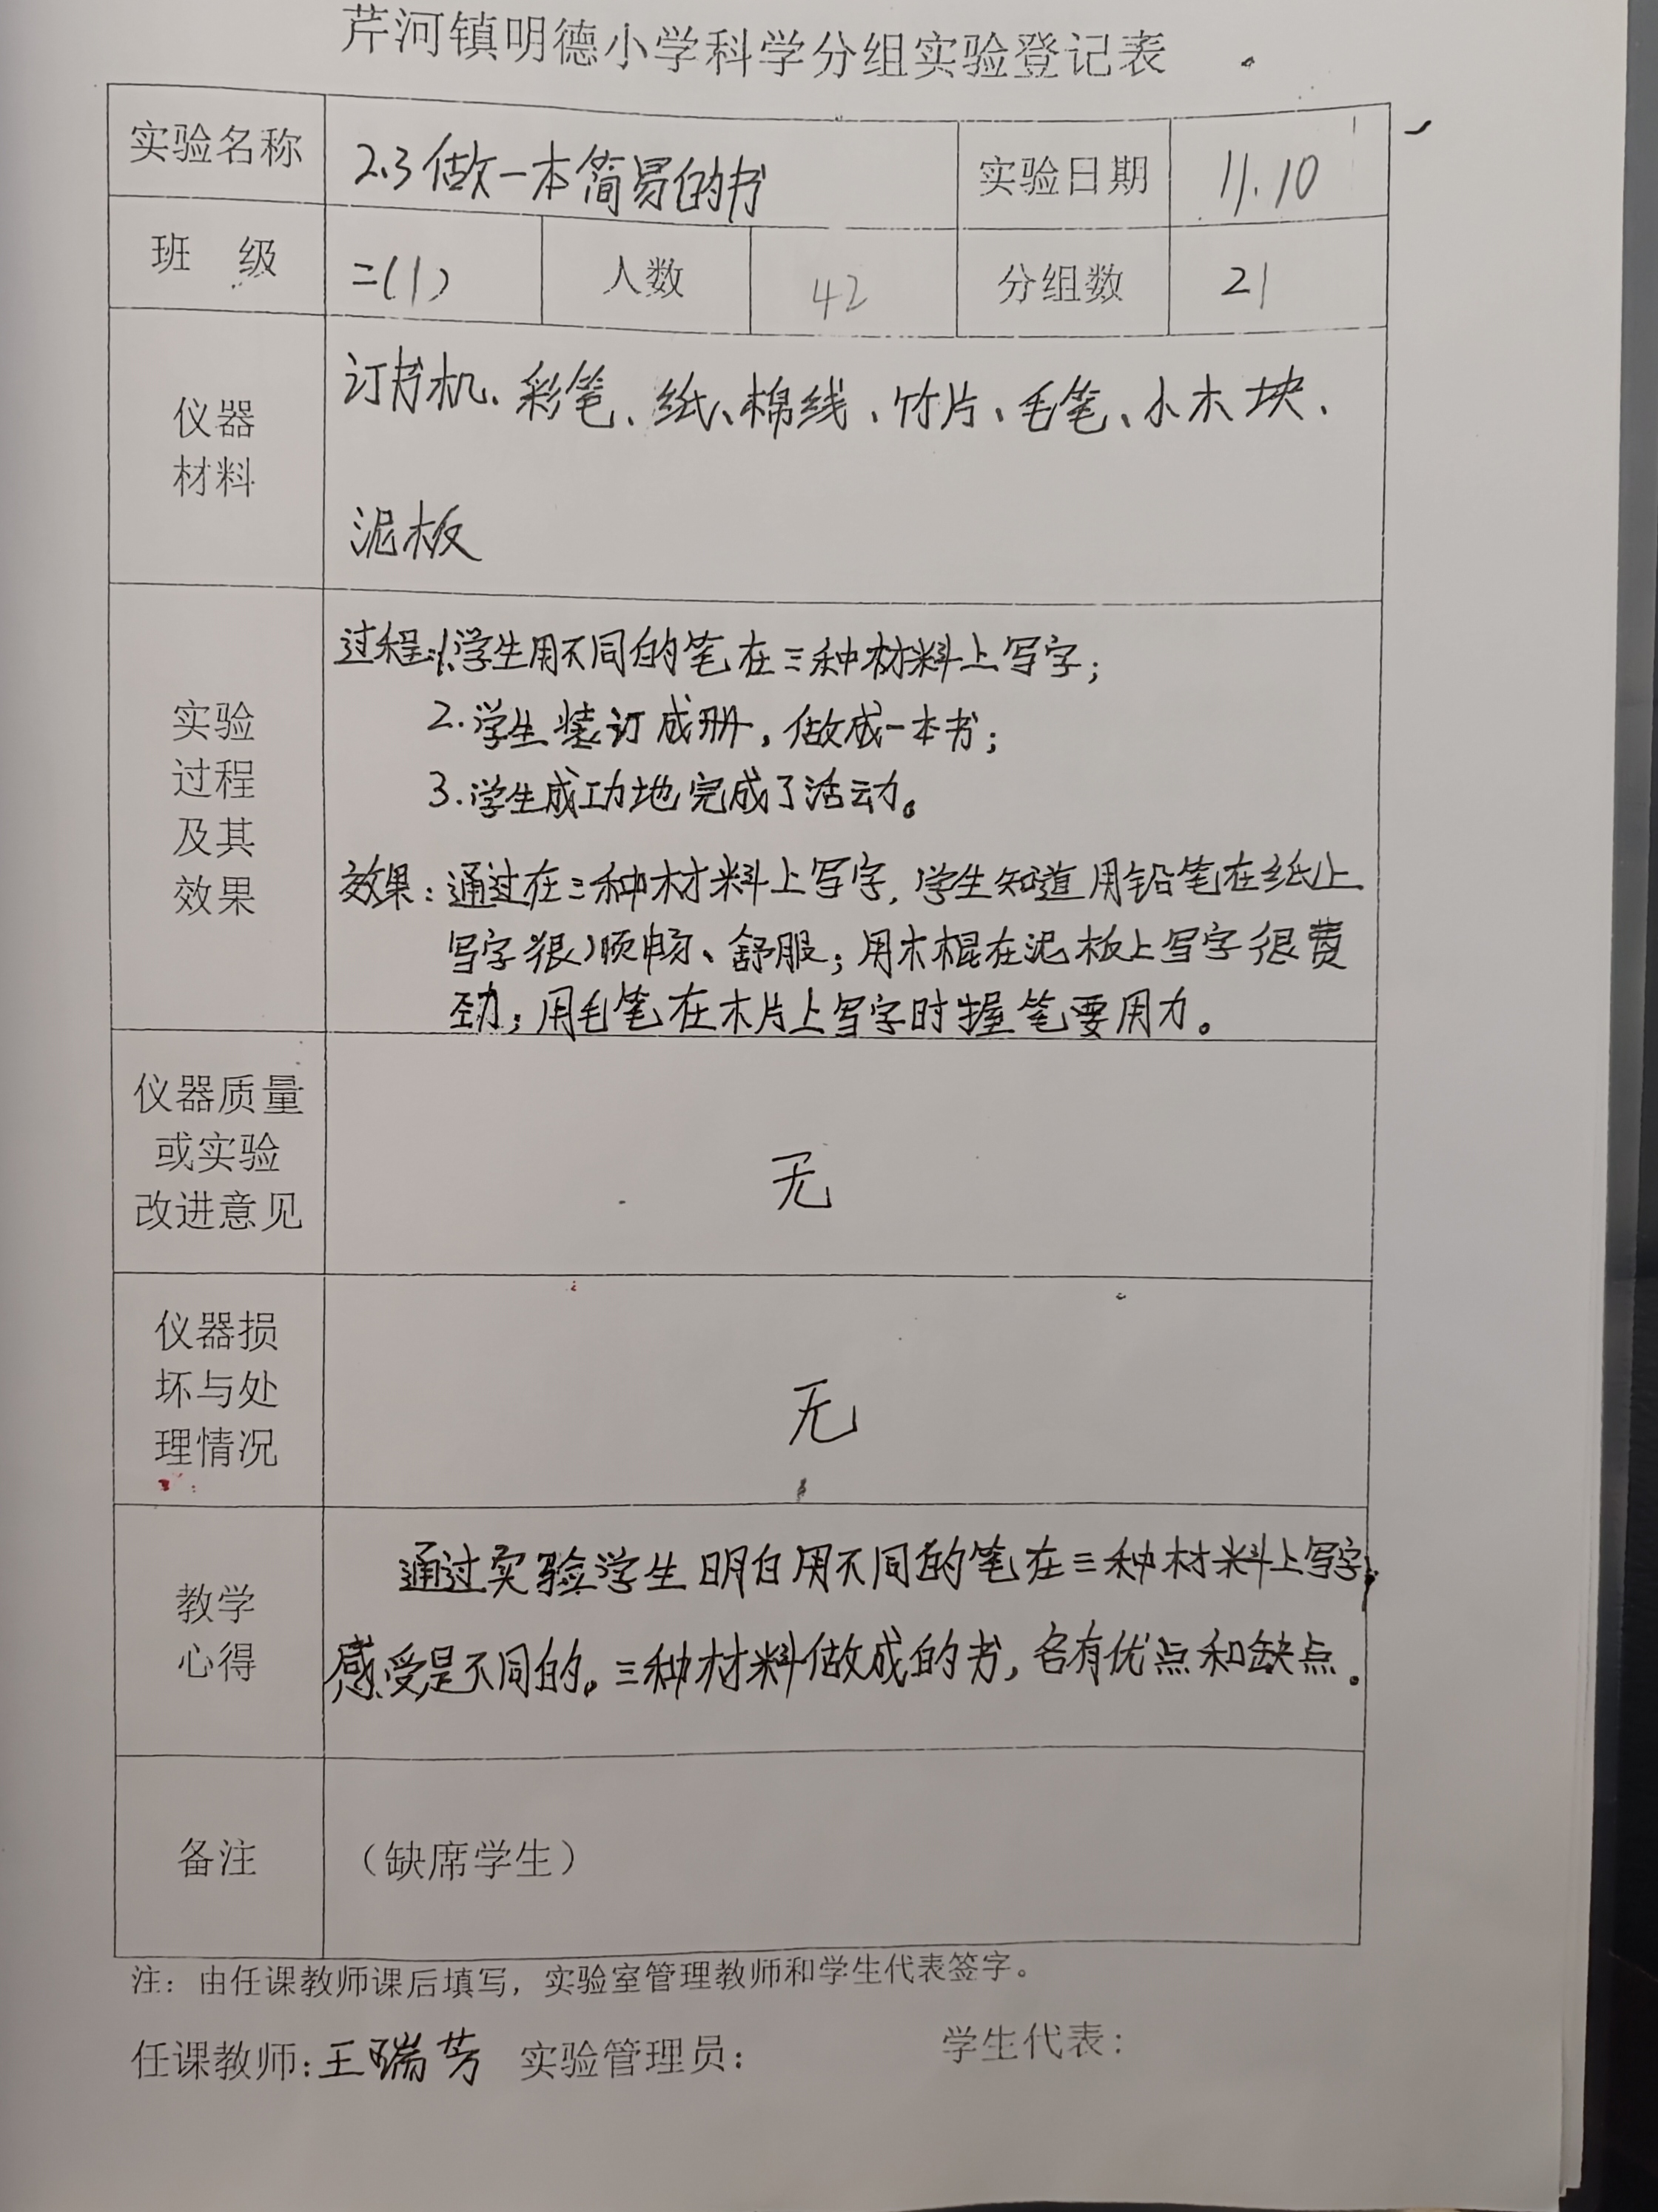 芹河镇明德小学科学分组实验登记表
实验名称 2.3做一本简易的书 实验日期 11.10
班 级 二(1) 人数 42 分组数 21
仪器
材料
订书机、彩笔、纸、棉线、竹片、毛笔、小木块、
泥板
实验
过程
及其
效果
过程:1.学生用不同的笔在三种材料上写字;
2.学生装订成册,做成一本书;
3.学生成功地完成了活动。
效果:通过在三种材料上写字,学生知道用铅笔在纸上
写字很顺畅、舒服;用木棍在泥板上写字很费
劲;用毛笔在木片上写字时握笔要用力。
仪器质量
或实验
改进意见
无
仪器损
坏与处
理情况
无
教学
心得
通过实验学生明白用不同的笔在三种材料上写字,
感受是不同的。三种材料做成的书,各有优点和缺点。
备注 (缺席学生)
注:由任课教师课后填写,实验室管理教师和学生代表签字。
任课教师:王瑞芳 实验管理员: 学生代表: